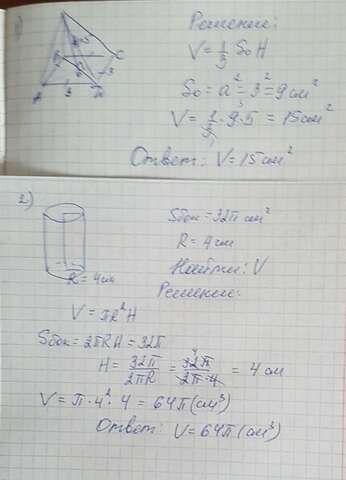 Решение:
V = 1/3 S₀ H
S₀ = a² = 3² = 9 см²
V = 1/3 · 9 · 5 = 15 см²
Ответ: V = 15 см²
C
3
3
2)
Sбок = 32π см²
R = 4 см
R = 4 см
Найти: V
Решение:
V = πR²H
Sбок = 2πRH = 32π
H = 32π/2πR = 32π/2π·4 = 4 см
V = π · 4² · 4 = 64π (см³)
Ответ: V = 64π (см³)